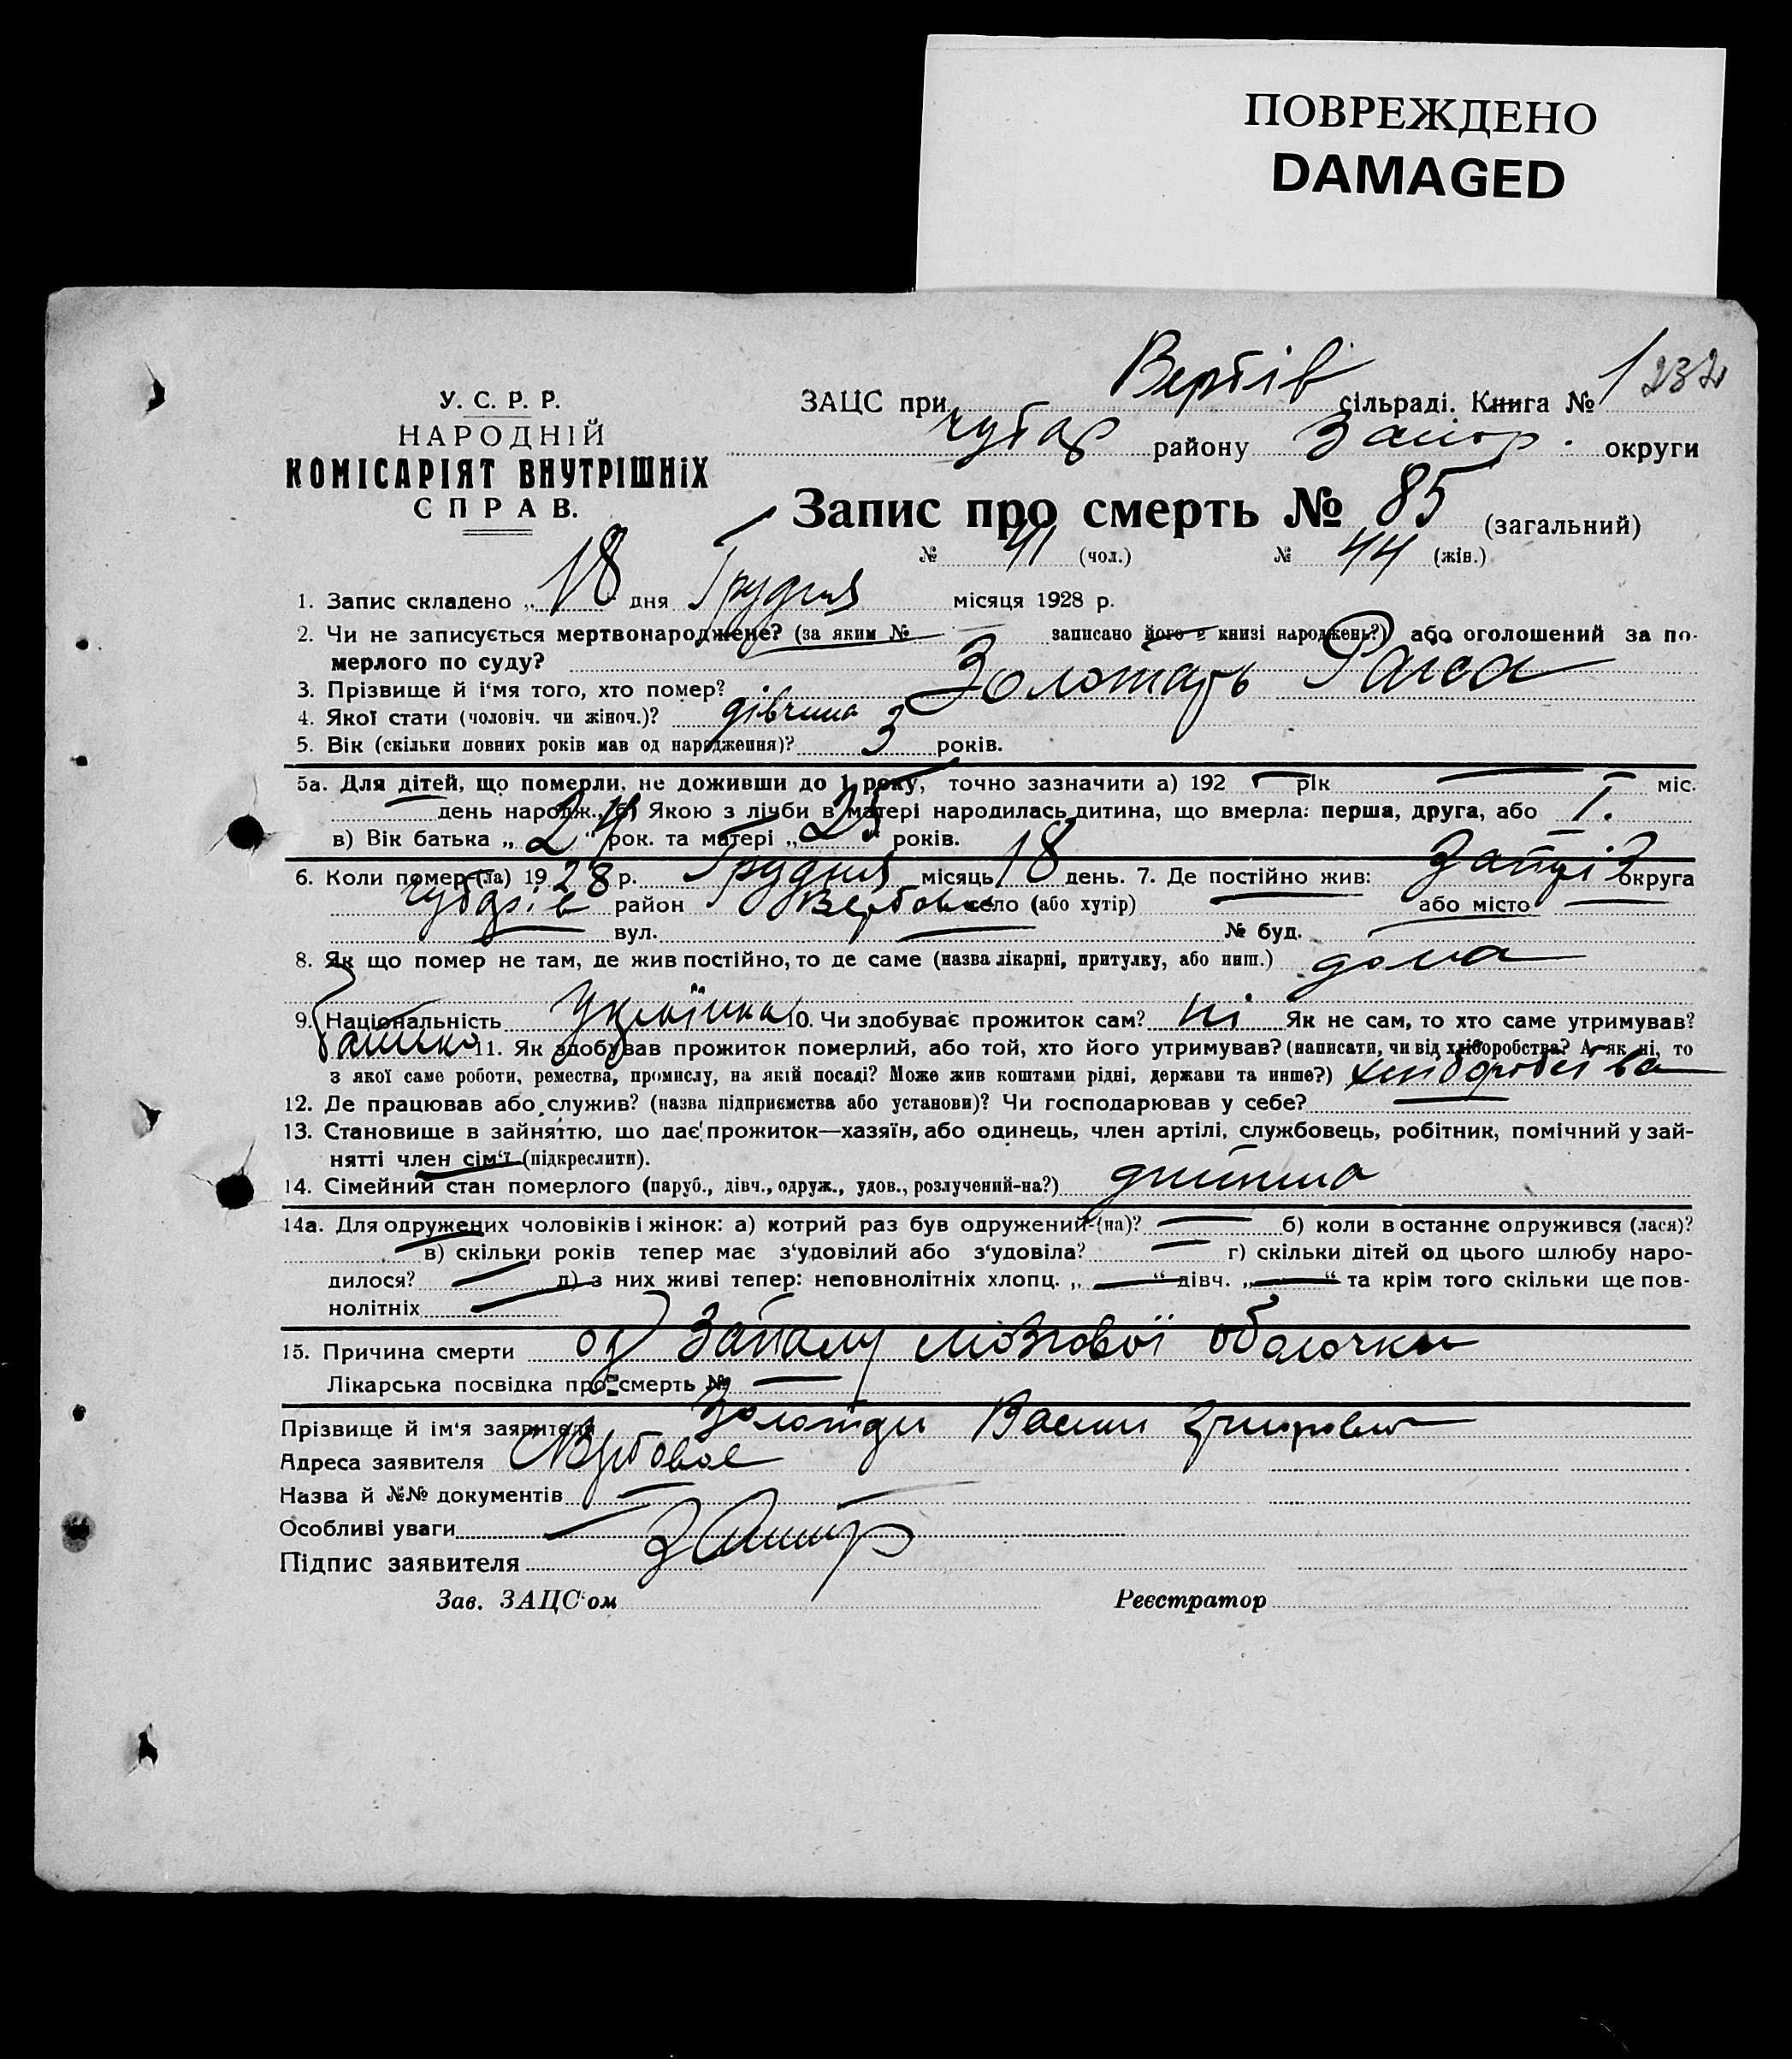 ПОВРЕЖДЕНО
DAMAGED
У. С. Р. Р.
НАРОДНІЙ
КОМІСАРІЯТ ВНУТРІШНІХ
СПРАВ.
ЗАЦС при Вербів сільраді. Книга № 1 232
Чубар району Запор. округи
Запис про смерть № 85 (загальний)
№ 41 (чол.) № 44 (жін.)
1. Запис складено „ 18 дня Грудня місяця 1928 р.
2. Чи не записується мертвонароджене? (за яким № — записано його в книзі народжень?) або оголошений за по-
мерлого по суду?
3. Прізвище й і'мя того, хто помер? Золотарь Раіса
4. Якої стати (чоловіч. чи жіноч.)? дівчина
5. Вік (скільки повних років мав од народження)? 3 років.
5а. Для дітей, що померли, не доживши до 1 року, точно зазначити а) 192 — рік — міс.
— день народж., б) Якою з лічби в матері народилась дитина, що вмерла: перша, друга, або 1.
в) Вік батька „ 24 “ рок. та матері „ 25 “ років.
6. Коли помер (ла) 1928 р. Грудня місяць 18 день. 7. Де постійно жив: Запоріз округа
Чубарів район Вербове село (або хутір) — або місто —
— вул. — № буд. —
8. Як що помер не там, де жив постійно, то де саме (назва лікарні, притулку, або инш.) дома
9. Національність Українка 10. Чи здобуває прожиток сам? ні Як не сам, то хто саме утримував?
батько 11. Як здобував прожиток померлий, або той, хто його утримував? (написати, чи від хліборобства? А як ні, то
з якої саме роботи, ремества, промислу, на якій посаді? Може жив коштами рідні, держави та инше?) хліборобства
12. Де працював або служив? (назва підприємства або установи)? Чи господарював у себе? —
13. Становище в зайняттю, що дає прожиток—хазяїн, або одинець, член артілі, службовець, робітник, помічний у зай-
нятті член сім'ї (підкреслити).
14. Сімейний стан померлого (паруб., дівч., одруж., удов., розлучений-на?) дитина
14а. Для одружених чоловіків і жінок: а) котрий раз був одружений-(на)? — б) коли в останнє одружився (лася)?
— в) скільки років тепер має з'удовілий або з'удовіла? — г) скільки дітей од цього шлюбу наро-
дилося? — д) з них живі тепер: неповнолітніх хлопц. „ — “ дівч. „ — “ та крім того скільки ще пов-
нолітніх —
15. Причина смерти од запалу мозгової оболочки
Лікарська посвідка про смерть № —
Прізвище й ім'я заявителя Золотарь Васил
Адреса заявителя Вербове
Назва й №№ документів —
Особливі уваги —
Підпис заявителя
Зав. ЗАЦС'ом Реєстратор